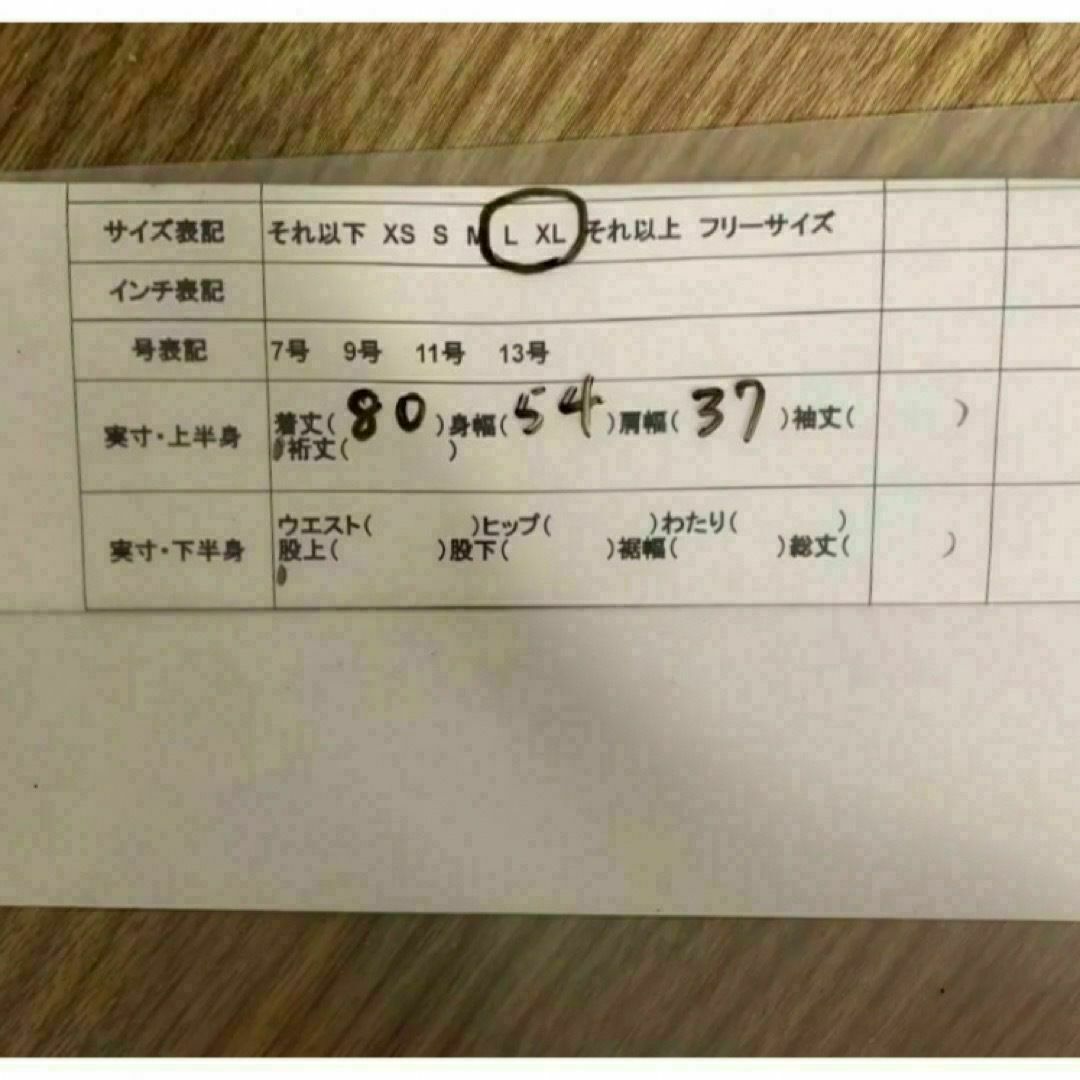 サイズ表記 それ以下 XS S M L XL それ以上 フリーサイズ
インチ表記
号表記 7号 9号 11号 13号
実寸・上半身 着丈( 80 )身幅( 54 )肩幅( 37 )袖丈( )
裄丈( )
実寸・下半身 ウエスト( )ヒップ( )わたり( )
股上( )股下( )裾幅( )総丈( )